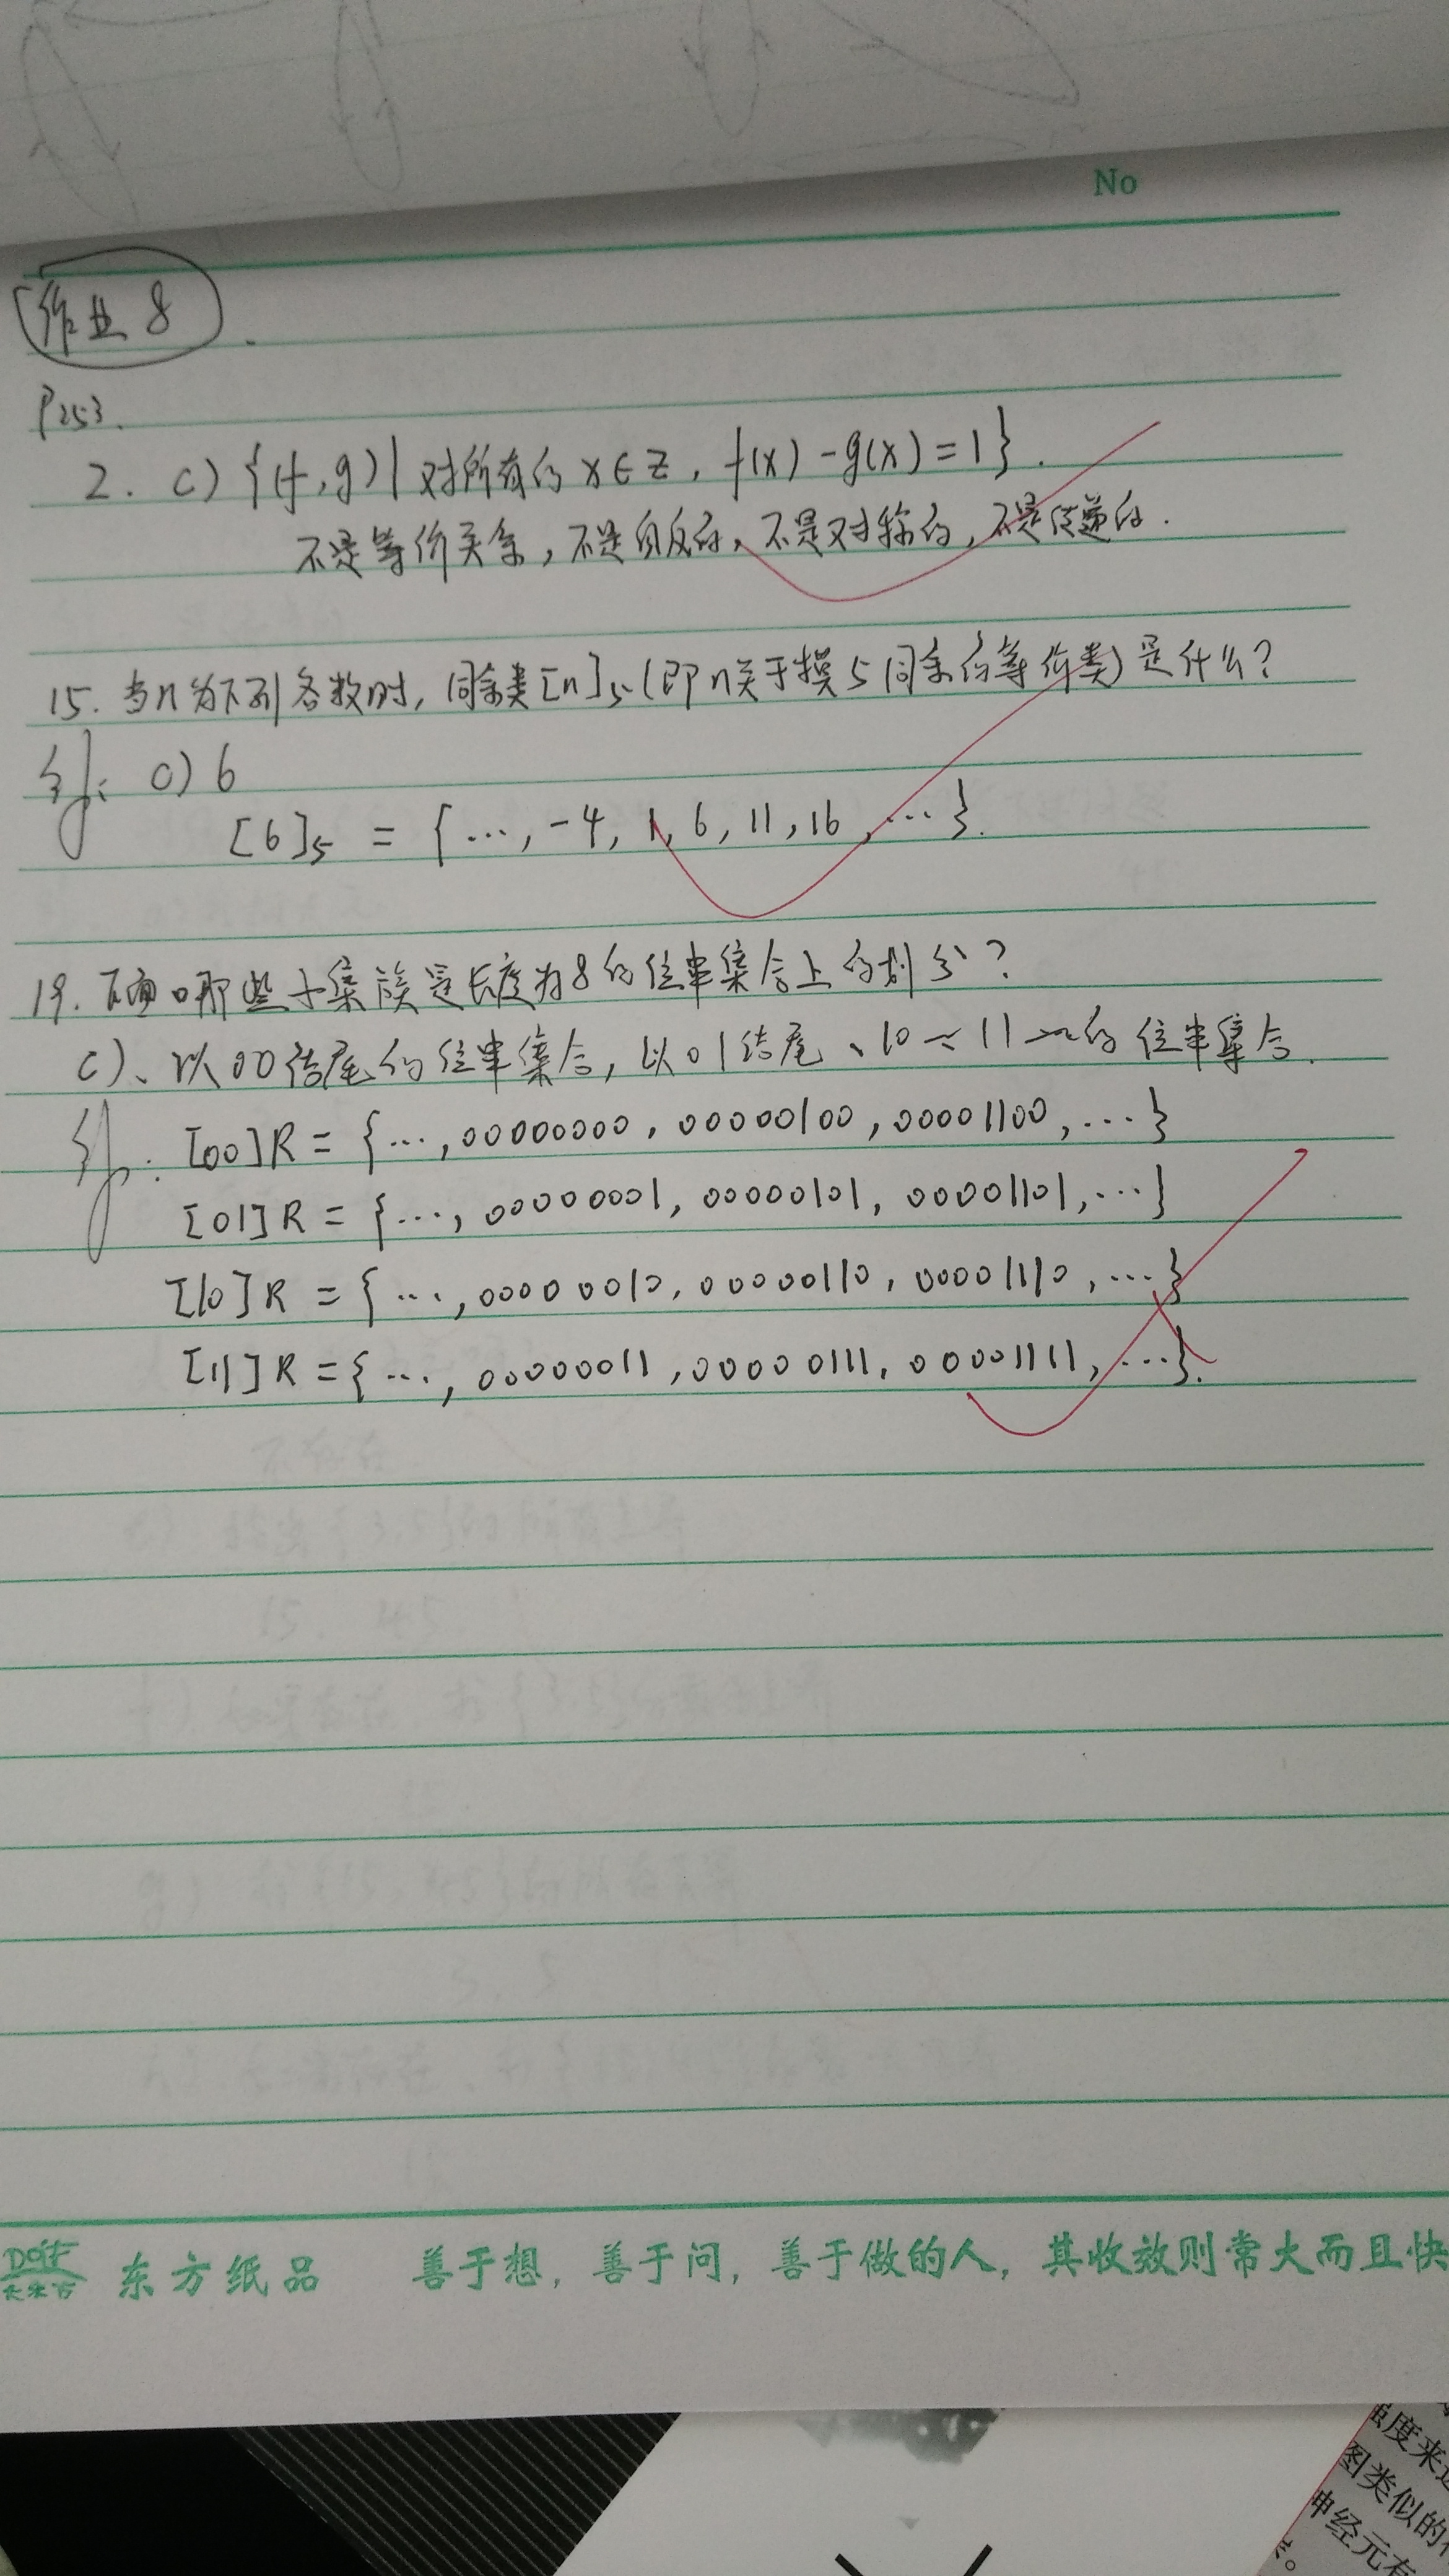 No
作业8
P253.
2. c) {(f,g)|对所有的 x∈Z, f(x)-g(x)=1}.
不是等价关系,不是自反的,不是对称的,不是传递的.
15. 当n为下列各数时,同余类[n]5(即n关于模5同余的等价类)是什么?
解: c) 6
[6]5 = {…,-4,1,6,11,16,…}.
19. 下面哪些子集族是长度为8的位串集合上的划分?
c)、以00结尾的位串集合,以01结尾、10 11 的位串集合.
解: [00]R = {…,00000000, 00000100, 00001100,…}
[01]R = {…, 00000001, 00000101, 00001101,…}
[10]R = {…,00000010, 00000110, 00001110,…}
[11]R = {…, 00000011, 00000111, 00001111,…}.
东方纸品 善于想,善于问,善于做的人,其收效则常大而且快
强度来
图类似的
申经元有